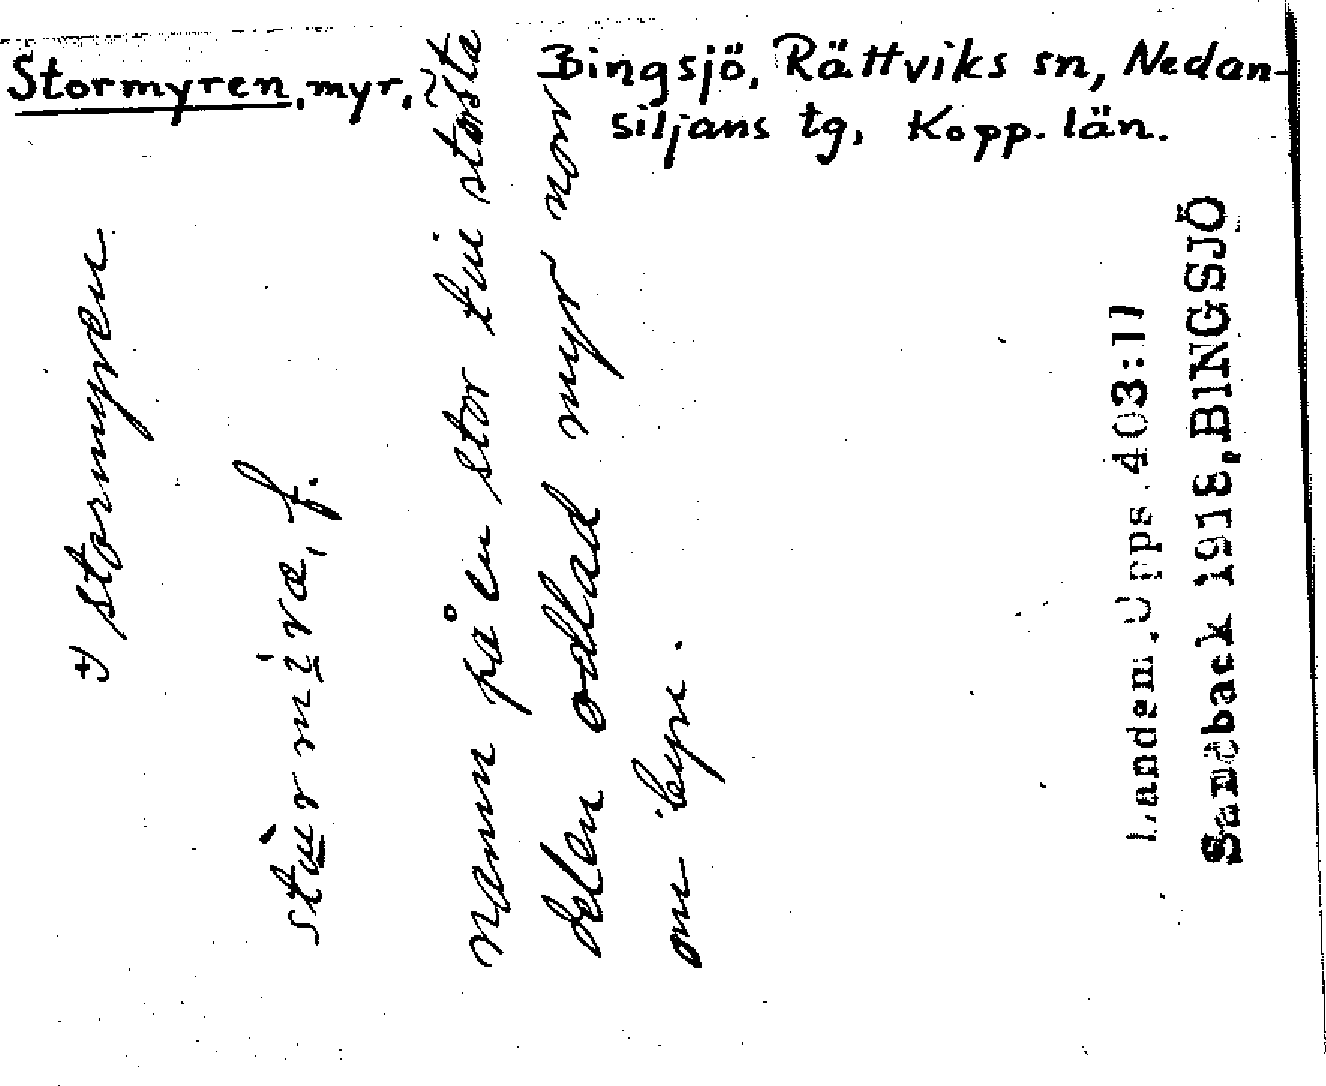 Stormyren, myr, Bingsjö, Rättviks sn, Nedan-
siljans tg, Kopp. län.
+) stormyren
namn på en stor till största
delen odlad myr norr
om byn.
Landsm. Upps. 403:11
Sandback 1918, BINGSJÖ